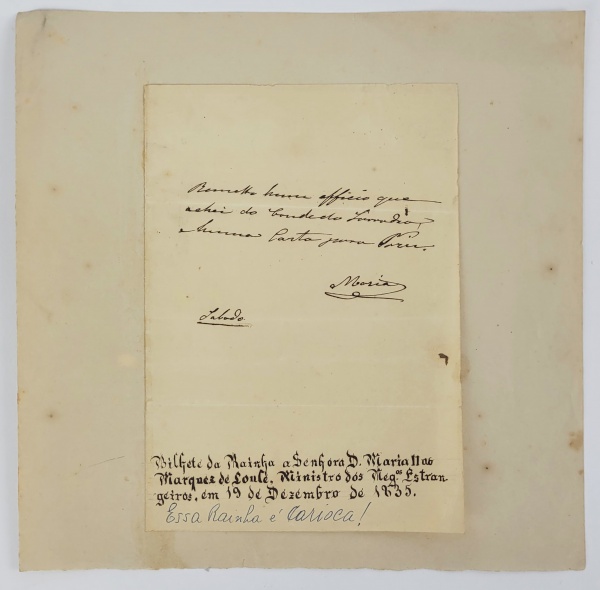 Remetto hum officio que
achei do Conde do Lavradio,
e huma Carta para
Maria
Sabado
Bilhete da Rainha a Senhora D. Maria II ao
Marquez de Loulé, Ministro dos Neg.os Estran-
geiros, em 19 de Dezembro de 1835.
Essa Rainha é Carioca!